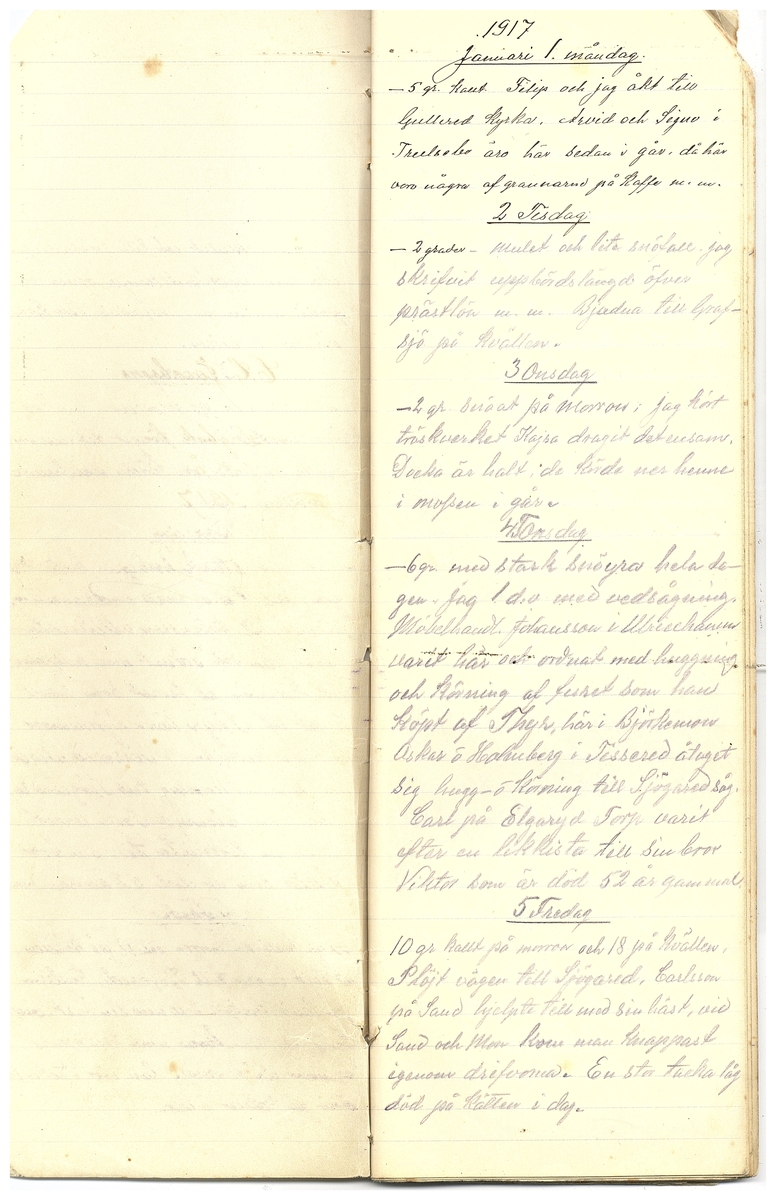 1917
Januari 1. måndag.
– 5 gr. kallt Filip och jag åkt till
Gullered kyrka. Arvid och Signe i
Treelsebo äro här sedan i går. då här
voro några af grannarne på kaffe m. m.
2 Tisdag.
– 2 grader – mulet och lite snöfall. jag
skrifvit uppbördslängd öfver
prästlön m. m. Bjudna till Graf-
sjö på kvällen.
3 Onsdag
– 2 gr. snöat på morron; jag kört
tröskverket Kajsa dragit det ensam.
Docka är halt, de körde ner henne
i mossen i går.
4 Torsdag
– 6 gr. med stark snöyra hela da-
gen. Jag 1 d.v med vedsågning.
Möbelhandl. Johansson i Ulricehamn
varit här och ordnat med huggning
och körning af furet som han
köpt af Thyr, här i Björkemon
Oskar o Holmberg i Tissered åtagit
sig hugg- o körning till Sjögared såg.
Carl på Elgaryd Torp varit
efter en likkista till sin bror
Viktor som är död 52 år gammal.
5 Fredag
10 gr kallt på morron och 18 på kvällen.
Plöjt vägen till Sjögared, Carlsson
på Sand hjelpte till med sin häst, vid
Sand och Mon kom man knappast
igenom drifvorna. En stor tacka låg
död på kätten i dag.